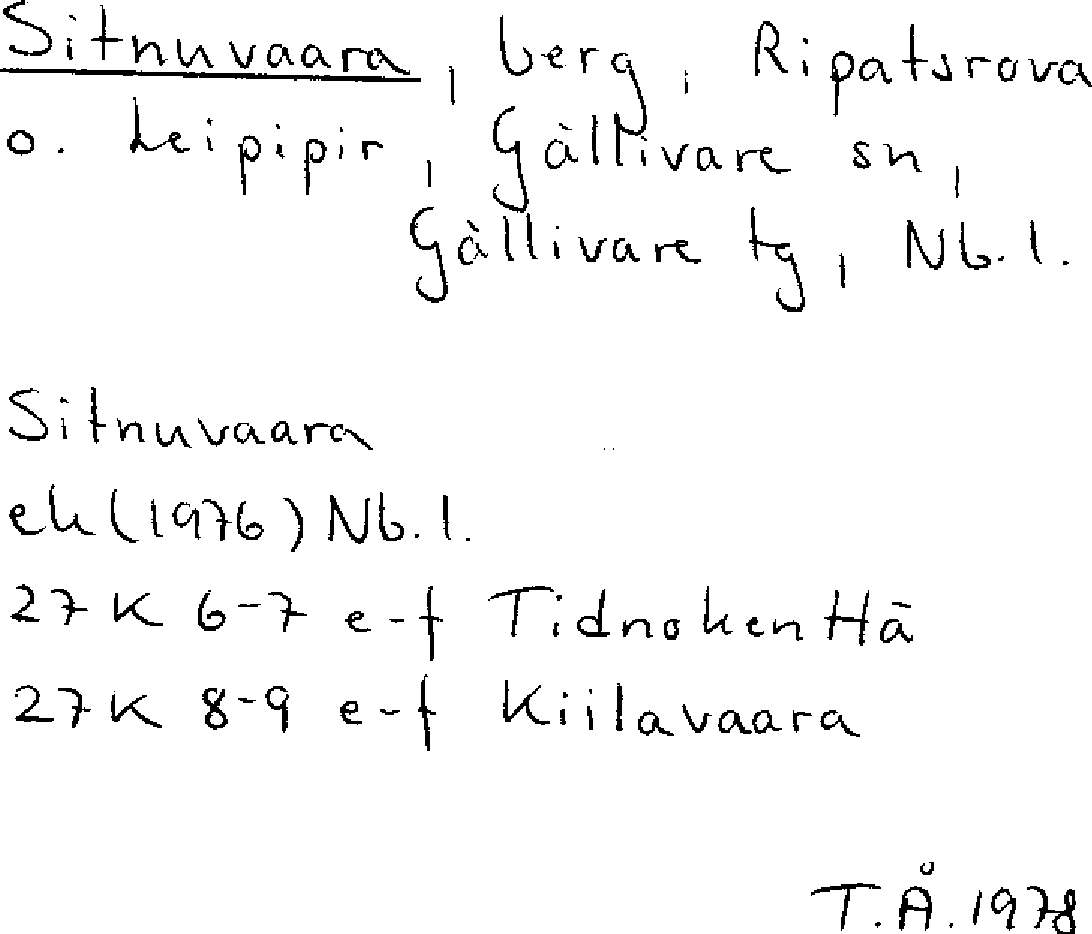 Sitnuvaara, berg, Ripatsrova
o. Leipipir, Gällivare sn,
Gällivare tg, Nb.l.
Sitnuvaara
ek (1976) Nb.l.
27K 6-7 e-f Tidnokenttä
27K 8-9 e-f Kiilavaara
T.Å. 1978